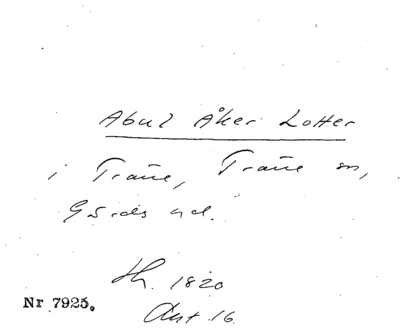 Abul Åker Lotter
i Trane, Trane sn,
Gärds hd.
Hh. 1820
Akt 16
Nr 7925.